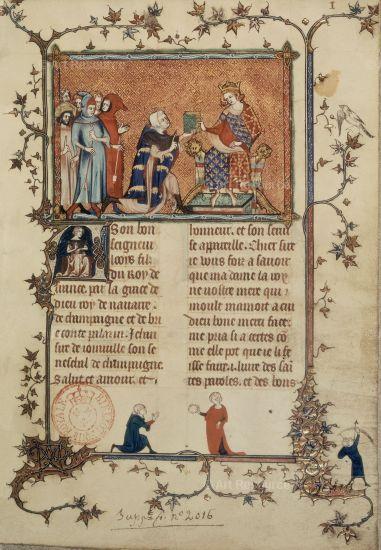 Son bon
seigneur
looys fil
du roy de
france. par la grace de
dieu roy de nauarre.
de champaigne et de brie
conte palazin. Jehan
sire de ioinuille son se
neschal de champaigne
salut et amour, et
honneur. et son seruise
appareille. Chier sire
ie vous foiz a sauoir
que ma dame la roy
ne vostre mere qui
moult mamoit a cui
dieu bone merci face
me pria si a certes com
me elle pot que ie li fe
isse faire .i. liure des sai
tes paroles, et des bons
Suppl. f. n° 2016